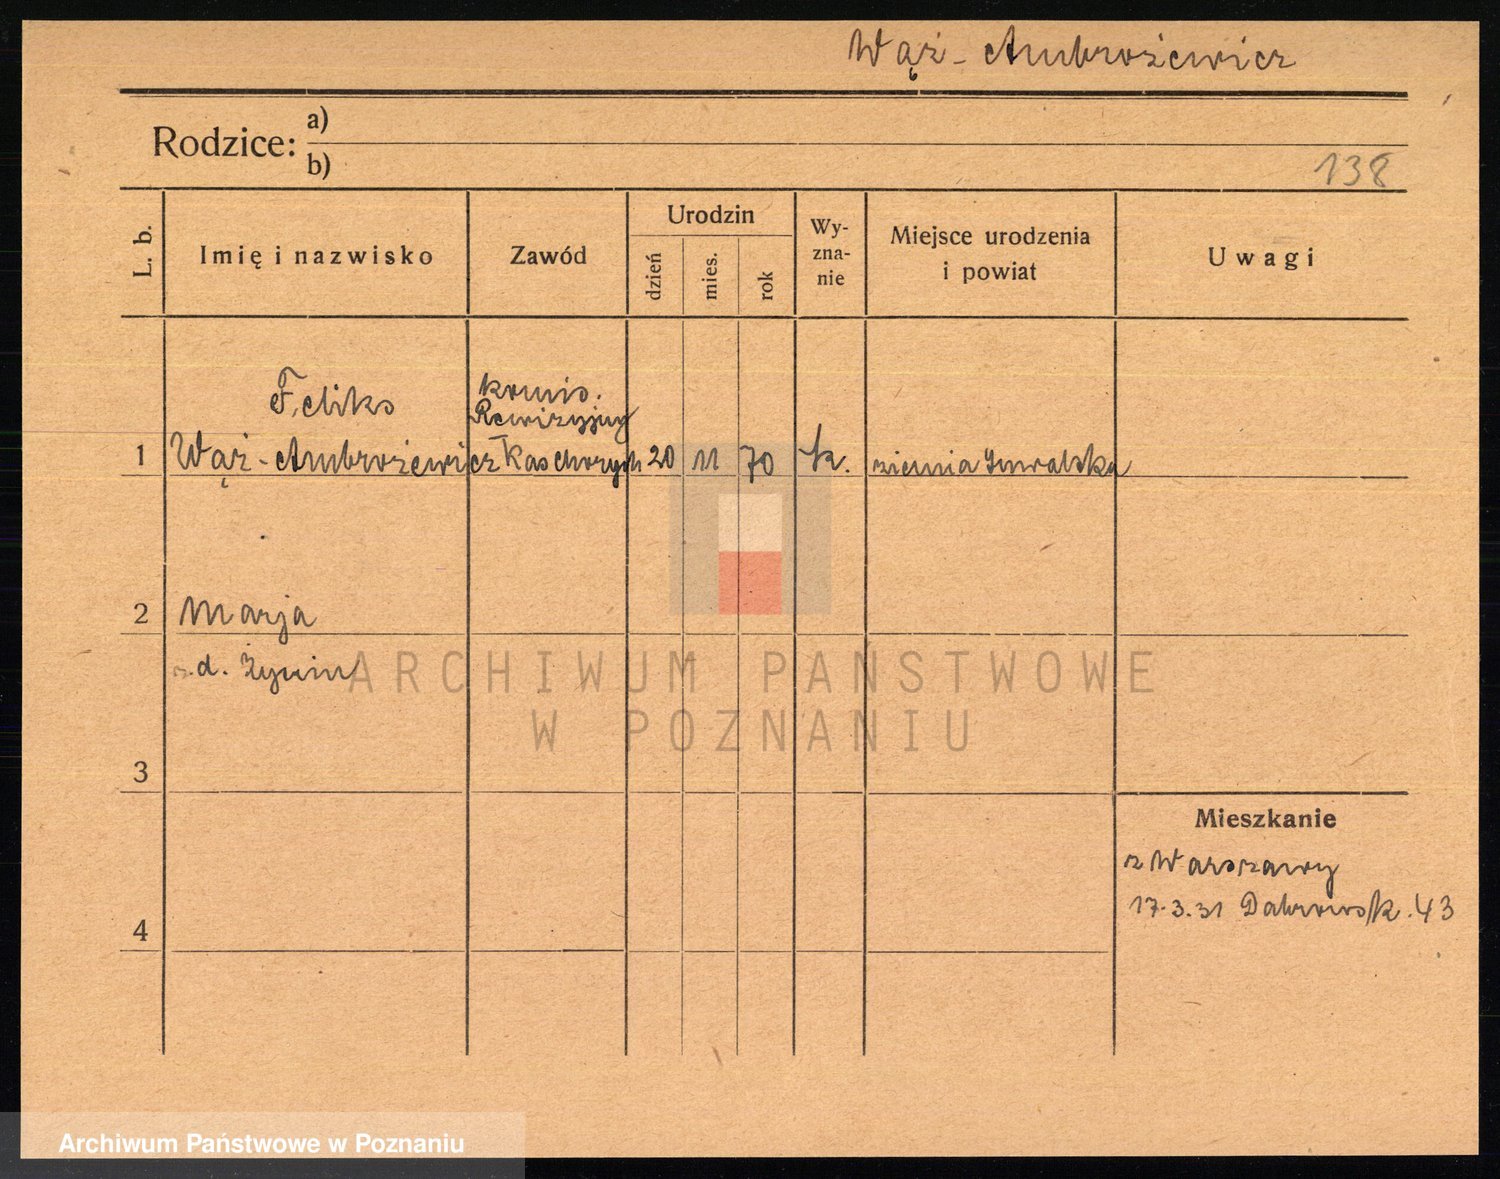 Wąż-Ambrożewicz
Rodzice: a)
b)
138
L. b.
Imię i nazwisko
Zawód
Urodzin
dzień
mies.
rok
Wy-
zna-
nie
Miejsce urodzenia
i powiat
Uwagi
Feliks
komis.
Rewizyjny
1 Wąż-Ambrożewicz Kas Chorych 20 11 70 k. ziemia Suwalska
2 Marja
z.d.
3
Mieszkanie
z Warszawy
17.3.31 Dabrowsk. 43
4
ARCHIWUM PAŃSTWOWE
W POZNANIU
Archiwum Państwowe w Poznaniu